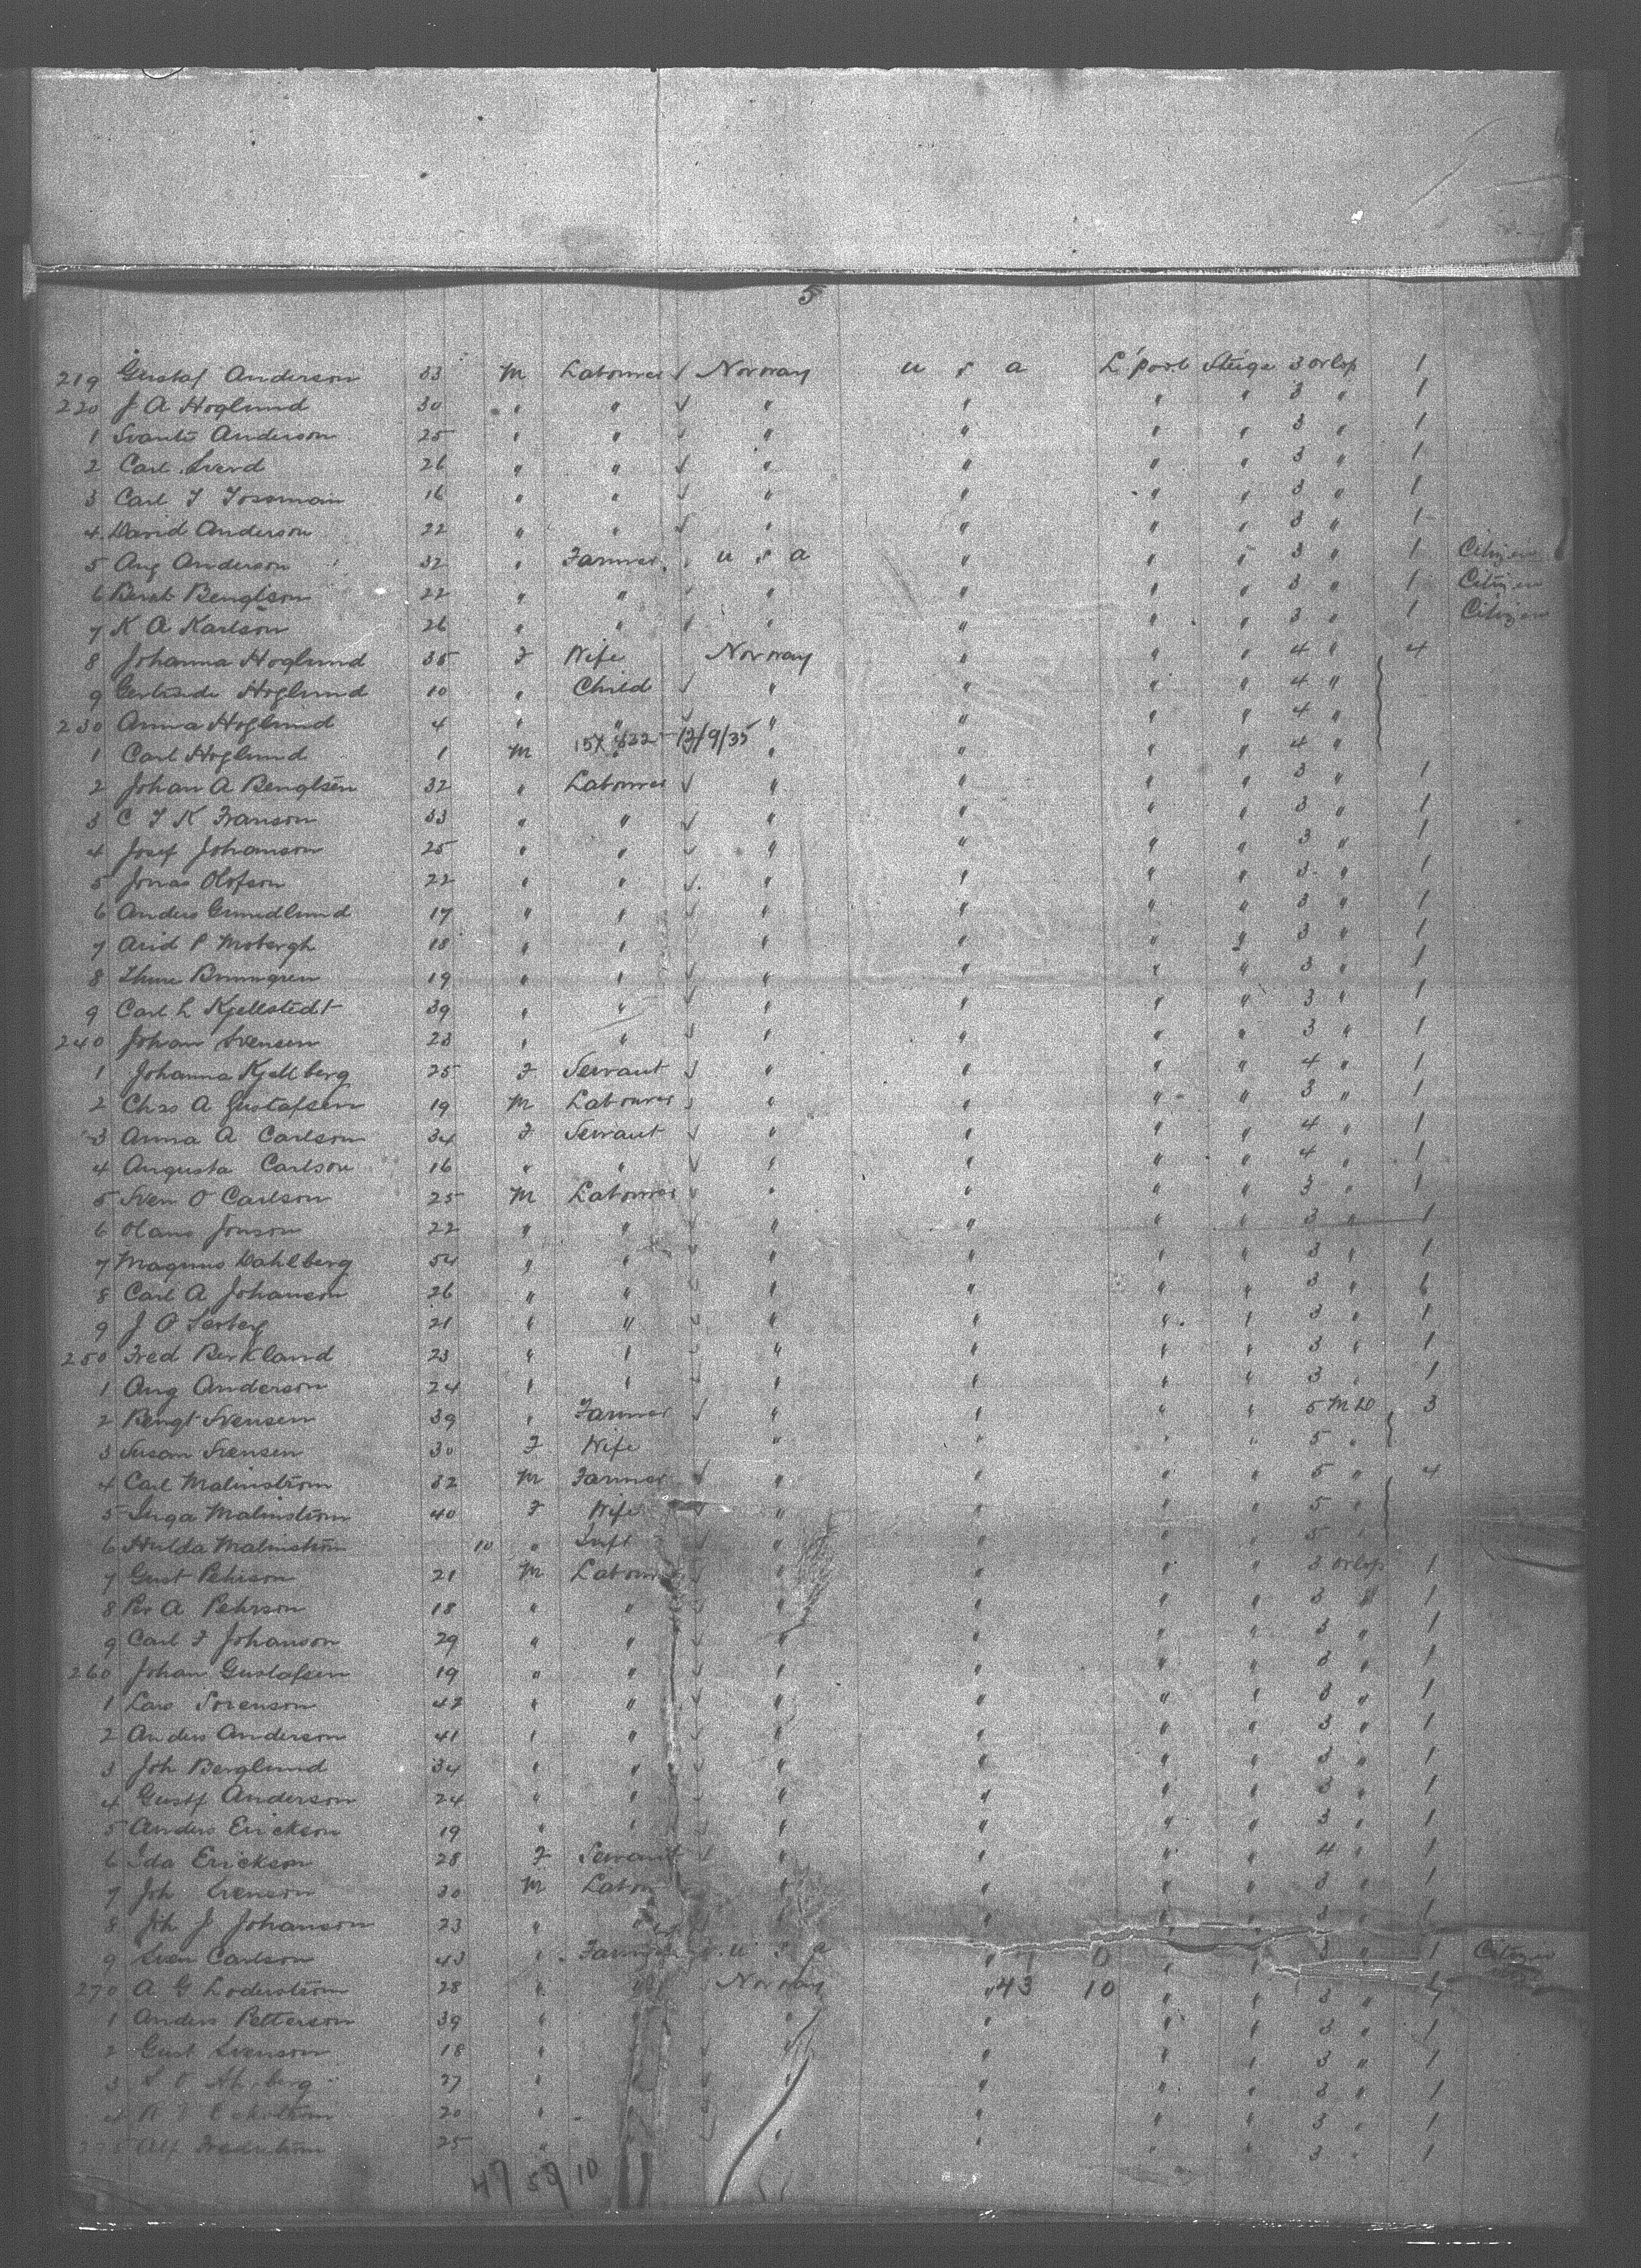 5
219 Gustaf Anderson 33 M Labourer √ Norway U S A L'pool Steige 3 orlop 1
220 J A Hoglund 30 " " √ " " " " 3 " 1
1 Svante Anderson 25 " " √ " " " " 3 " 1
2 Carl Sverd 26 " " √ " " " " 3 " 1
3 Carl J 16 " " √ " " " " 3 " 1
4 David Anderson 22 " " √ " " " " 3 " 1
5 Aug Anderson 32 " Farmer U S A " " " 3 " 1 Citizen
6 Bengtson 22 " " " " " " 3 " 1 Citizen
7 K A Karlson 26 " " " " " " 3 " 1 Citizen
8 Johanna Hoglund 35 F Wife Norway " " " 4 " 4
9 Gertrude Hoglund 10 " Child √ " " " " 4 "
230 Anna Hoglund 4 " " √ " " " " 4 "
1 Carl Hoglund 1 M 15X 432 - 12/9/35 " " " " 4 "
2 Johan A Bengtsen 32 " Labourer √ " " " " 3 " 1
3 C F K Franson 33 " " √ " " " " 3 " 1
4 Josef Johanson 25 " " √ " " " " 3 " 1
5 Jonas Olofson 22 " " √ " " " " 3 " 1
6 Anders Grundlund 17 " " √ " " " " 3 " 1
7 Arid P Mobergh 18 " " √ " " " " 3 " 1
8 Thure Brunngren 19 " " √ " " " " 3 " 1
9 Carl L Kjellstedt 39 " " √ " " " " 3 " 1
240 Johan Svensen 23 " " √ " " " " 3 " 1
1 Johanna Kjellberg 25 F Servant √ " " " " 4 " 1
2 Chas A Gustafsen 19 M Labourer √ " " " " 3 " 1
3 Anna A Carlson 34 F Servant √ " " " " 4 " 1
4 Augusta Carlson 16 " " √ " " " " 4 " 1
5 Sven O Carlson 25 M Labourer √ " " " " 3 " 1
6 Olans Jonson 22 " " √ " " " " 3 " 1
7 Magnus Dahlberg 54 " " √ " " " " 3 " 1
8 Carl A Johanson 26 " " √ " " " " 3 " 1
9 J O 21 " " √ " " " " 3 " 1
250 Fred Berkland 23 " " √ " " " " 3 " 1
1 Aug Anderson 24 " " √ " " " " 3 " 1
2 Bengt Svensen 39 " Farmer √ " " " " 5 M 3
3 Susan Svensen 30 F Wife " " " " 5 "
4 Carl Malmstrom 32 M Farmer √ " " " " 5 " 4
5 Inga Malmstrom 40 F Wife √ " " " " 5 "
6 Hulda Malmstrom 10 " Inft √ " " " " 5 "
7 Gust Pehrson 21 M Labourer √ " " " " 3 orlop 1
8 Per A Pehrson 18 " " √ " " " " 3 " 1
9 Carl F Johanson 29 " " √ " " " " 3 " 1
260 Johan Gustafsen 19 " " √ " " " " 3 " 1
1 Lars Sorenson 42 " " √ " " " " 3 " 1
2 Anders Anderson 41 " " √ " " " " 3 " 1
3 Joh Berglund 34 " " √ " " " " 3 " 1
4 Gustf Anderson 24 " " √ " " " " 3 " 1
5 Anders Erickson 19 " " √ " " " " 3 " 1
6 Ida Erickson 28 F Servant √ " " " " 4 " 1
7 Joh Svenson 30 M Labou " " " " 3 " 1
8 Joh J Johanson 23 " " " " " " 3 " 1
9 Sven Carlson 43 " Farmer U S A " " " 3 " 1 Citizen
270 A G Loderstrom 28 " " Norway " 43 10 " " 3 " 1
1 Anders Petterson 39 " " " " " " 3 " 1
2 Gust Svenson 18 " " √ " " " " 3 " 1
3 27 " " √ " " " " 3 " 1
4 20 " " √ " " " " 3 " 1
275 Alf 25 " " " " " " 3 " 1
47 59 10